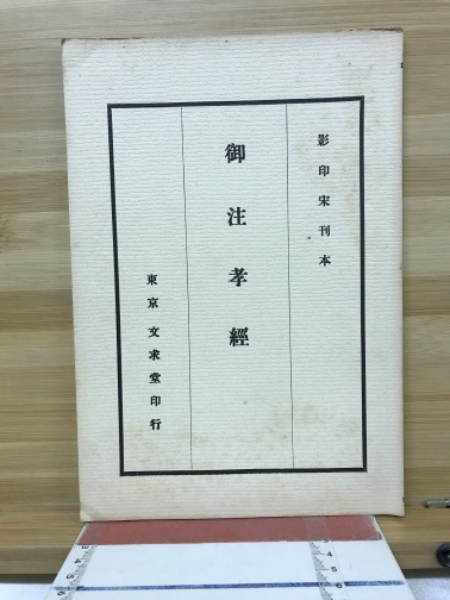 影印宋刊本
御注孝經
東京文求堂印行